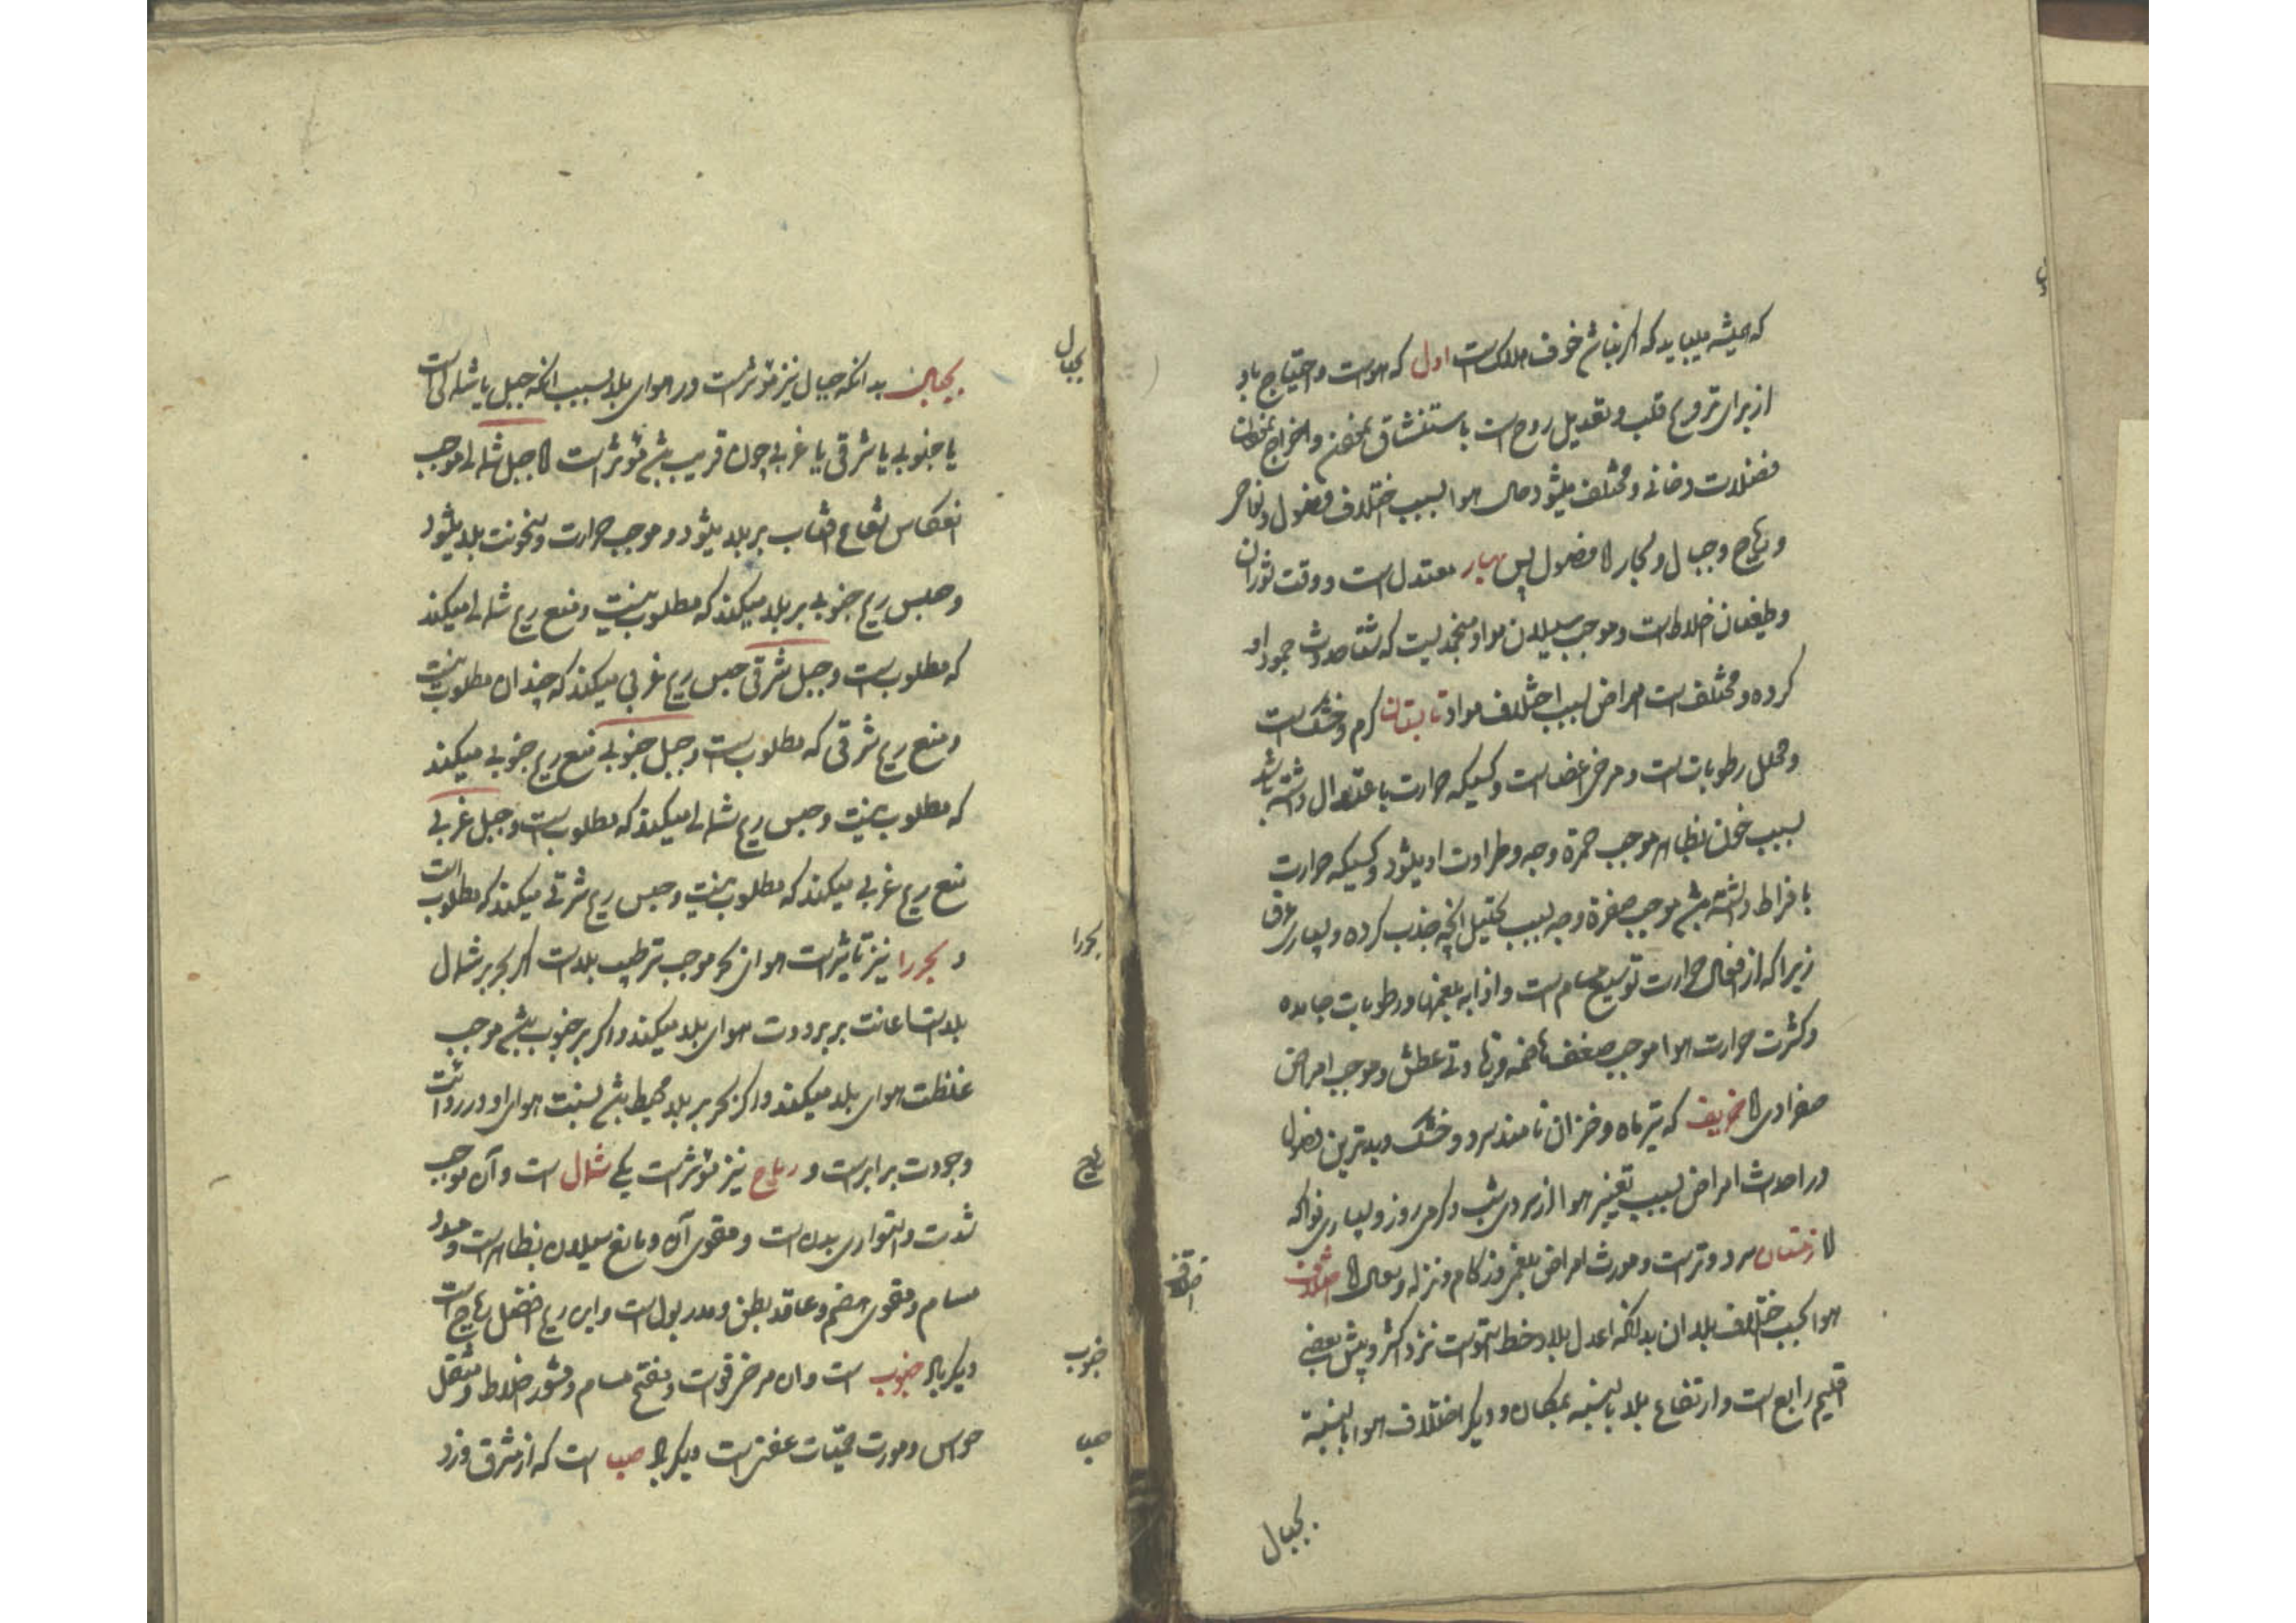 که همیشه میباید که اگر نباشد خوف هلاکست اول که هواست و احتیاج باو
از برای ترویح قلب و تعدیل روح است باستنشاق و اخراج
فضلات دخانی و مختلف میشود حال هوا بسبب اختلاف فصول و نواحی
و ریاح و جبال و بحار اما فصول پس بهار معتدل است و وقت ثوران
و طغیان اخلاط است و موجب سیلان مواد منجمد
کرده و مختلف است امراض بسبب اختلاف مواد تابستان گرم و خشک است
و محلل رطوبات است و مرخی اعضاست و کسیکه حرارت باعتدال داشته باشد
بسبب خون بظاهر موجب حمرة وجه و طراوت او میشود و کسیکه حرارت
بافراط داشته باشد موجب صفرة وجه بسبب تحلیل آنچه جذب کرده و بسیاری عرق
زیرا که از افعال حرارت توسیع مسام است و اذابه بلغمها و رطوبات جامده
و کثرت حرارت هوا موجب ضعف هاضمه و عطش و موجب امراض
صفراوی اما خریف که تیر ماه و خزان نامند سرد و خشک و بدترین فصول
در احداث امراض بسبب تغییر هوا از سردی شب و گرمی روز و بسیاری فواکه
اما زمستان سرد و تر است و مورث امراض بلغمی و زکام و نزله و سعال اما اختلاف
هوا بحسب اختلاف بلدان بدانکه اعدل بلاد خط استواست نزد اکثر و پیش بعضی
اقلیم رابع است و ارتفاع بلد بالنسبه بمکان و دیگر اختلاف هوا بالنسبة
اختلاف
بجبال
بجبال بدانکه جبال نیز مؤثر است در هوای بلد بسبب آنکه جبل یا شمالی است
یا جنوبی یا شرقی یا غربی چون قریب باشد مؤثر است اما جبل شمالی موجب
انعکاس شعاع آفتاب بر بلد میشود و موجب حرارت و سخونت بلد میشود
و حبس ریح جنوبی بر بلد میکند که مطلوب نیست و منع ریح شمالی میکند
که مطلوبست و جبل شرقی حبس ریح غربی میکند که چندان مطلوب نیست
و منع ریح شرقی که مطلوبست و جبل جنوبی منع ریح جنوبی میکند
که مطلوب نیست و حبس ریح شمالی میکند که مطلوبست و جبل غربی
منع ریح غربی میکند که مطلوب نیست و حبس ریح شرقی میکند که مطلوب است
و بحر را نیز تاثیر است موجب ترطیب بلد است اگر بحر بر شمال
بلد است اعانت بر برودت هوای بلد میکند و اگر بر جنوب باشد موجب
غلظت هوای بلد میکند و اگر بحر بر بلد محیط باشد نسبت هوای او در ردائت
و جودت برابر است و ریاح نیز مؤثر است یکی شمال است و آن موجب
شدت و استواری بدن است و مقوی آن و مانع سیلان بظاهر است و مسدد
مسام و مقوی هضم و عاقد بطن و مدر بول است و این ریح افضل ریاح است
دیگر باد جنوب است و آن مرخی قوت و مفتح مسام و مثور اخلاط و مثقل
حواس و مورث حمیات عفنی است دیگر باد صبا است که از مشرق وزد
بجبال
بحر را
ریاح
جنوب
صبا